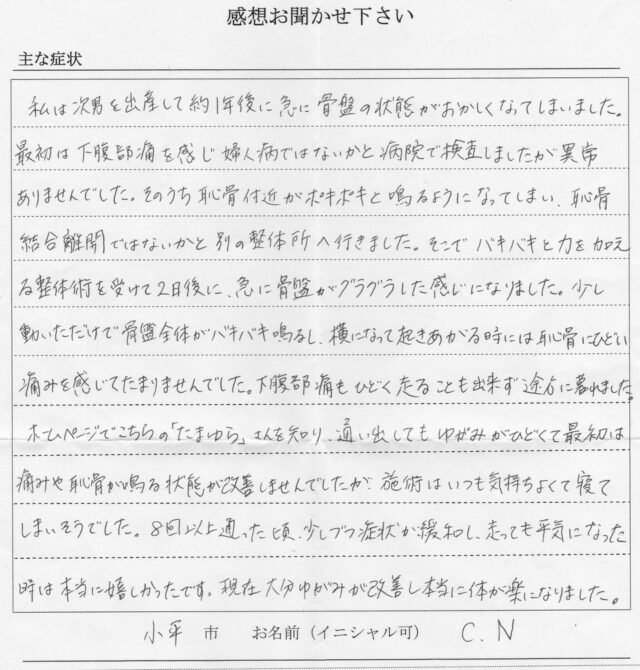 感想お聞かせ下さい
主な症状
私は次男を出産して約1年後に急に骨盤の状態がおかしくなってしまいました。
最初は下腹部痛を感じ婦人病ではないかと病院で検査しましたが異常
ありませんでした。そのうち恥骨付近がポキポキと鳴るようになってしまい、恥骨
結合離開ではないかと別の整体所へ行きました。そこでバキバキと力を加え
る整体術を受けて2日後に、急に骨盤がグラグラした感じになりました。少し
動いただけで骨盤全体がバキバキ鳴るし、横になって起きあがる時には恥骨にひどい
痛みを感じてたまりませんでした。下腹部痛もひどく走ることも出来ず途方に暮れました。
ホームページでこちらの「たまゆら」さんを知り、通い出してもゆがみがひどくて最初は
痛みや恥骨が鳴る状態が改善しませんでしたが、施術はいつも気持ちよくて寝て
しまいそうでした。8回以上通った頃、少しづつ症状が緩和し、走っても平気になった
時は本当に嬉しかったです。現在大分ゆがみが改善し本当に体が楽になりました。
小平 市 お名前（イニシャル可） C.N